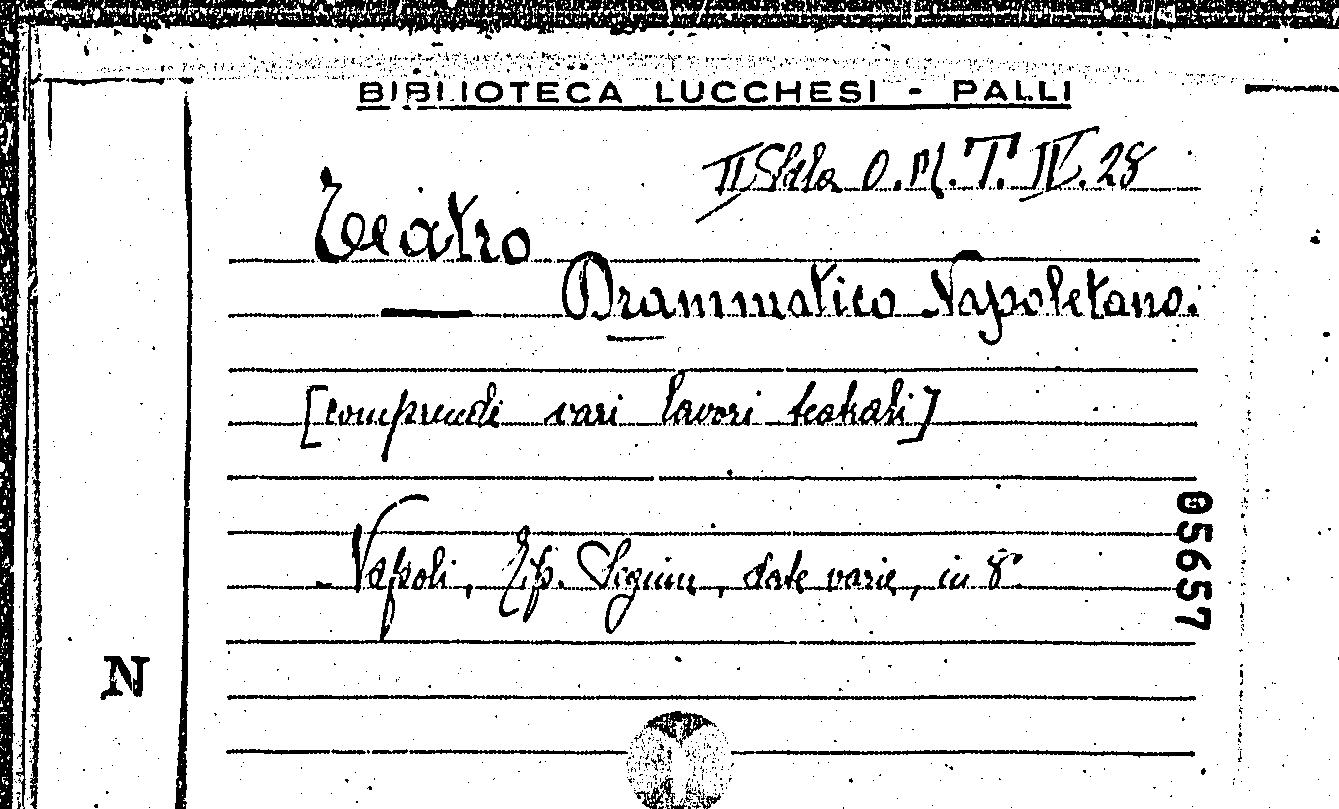 BIBLIOTECA LUCCHESI - PALLI
II Sala O. M. T. IV. 28
Teatro
Drammatico Napoletano.
[comprende vari lavori teatrali]
Napoli, Tip. date varie, in 8°
05657
N